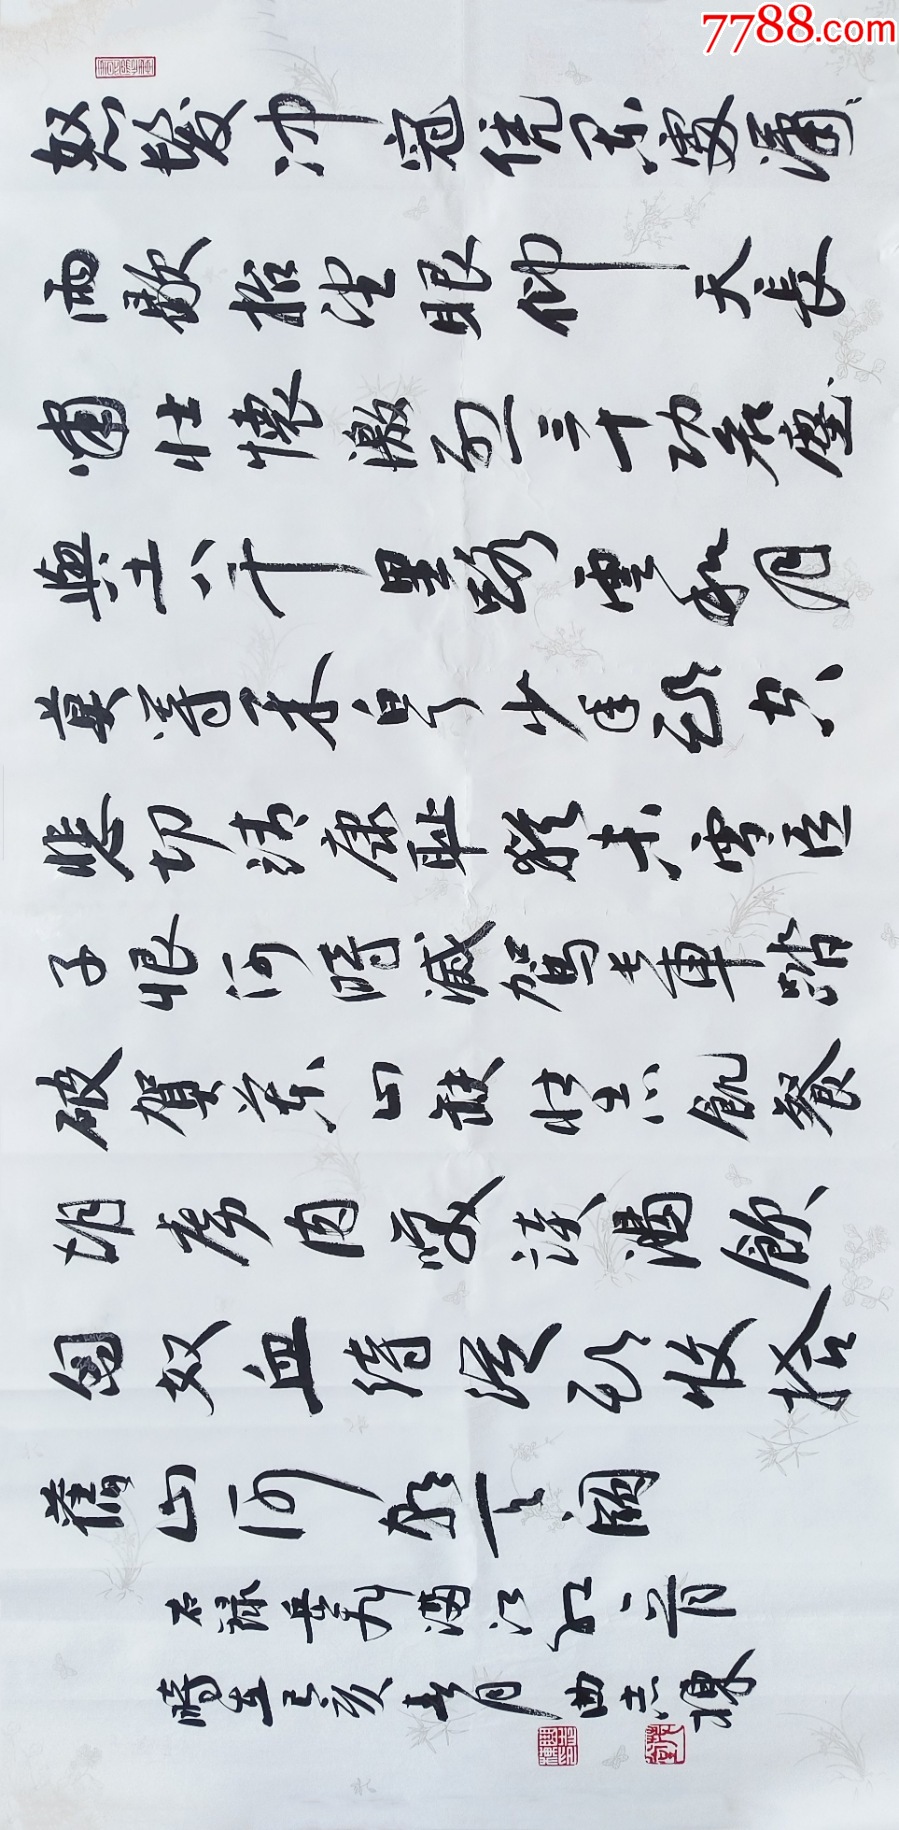 7788.com
怒髮冲冠凭栏處瀟
雨歇抬望眼仰天長
嘯壯懷激烈三十功名塵
與土八千里路雲和月
莫等閑白了少年頭空
悲切靖康恥猶未雪臣
子恨何時滅駕長車踏
破賀蘭山缺壯志飢餐
胡虜肉笑談渴飲
匈奴血待從頭收拾
舊山河朝天闕
右録岳飛滿江紅一首
時在己亥春月曲志